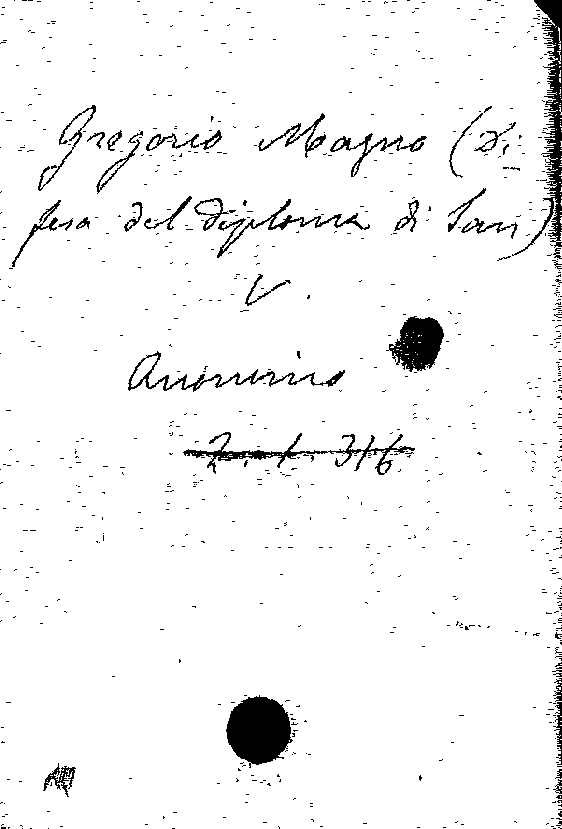 Gregorio Magno (Di-
fesa del diploma di San)
V.
Anonimo
2. 1. 316